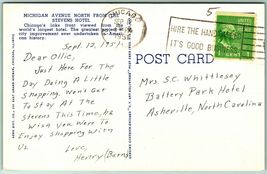 MICHIGAN AVENUE NORTH FROM
STEVENS HOTEL
Chicago's lake front viewed from the
world's largest hotel. The greatest
city improvement ever undertaken in Ameri-
can history.
Sept. 12, 1951
Dear Ollie,
Just Here For The
Day Doing A Little
Shopping, Won't Get
To Stay At The
Stevens This Time, But
Wish You Were To
Enjoy Shopping With
Us.
Love,
Henry (Barns)
5
CHICAGO
SEP
HIRE THE HANDICAPPED
IT'S GOOD BUSINESS
1
POST CARD
Mrs. S.C. Whittlesey
Battery Park Hotel
Asheville, North Carolina